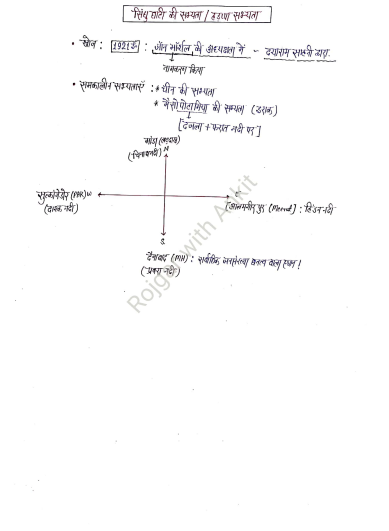 सिंधु घाटी की सभ्यता / हड़प्पा सभ्यता
• खोज : 1921 ई. : जॉन मॉर्शल की अध्यक्षता में - दयाराम साहनी द्वारा
नामकरण किया
• समकालीन सभ्यताएँ : * चीन की सभ्यता
* मैसोपोटामिया की सभ्यता (इराक)
[दजला + फरात नदी पर]
मांडा
(चिनाब नदी)
N
सुत्कागेंडोर (PAK) W
E
(दाश्क नदी)
[आलमगीर पुर (Meerut)] : हिंडन नदी
S
दैमाबाद (MH) : सार्वाधिक जनसंख्या घनत्व वाला स्थान !
(प्रवरा नदी)
Rojgar with Ankit